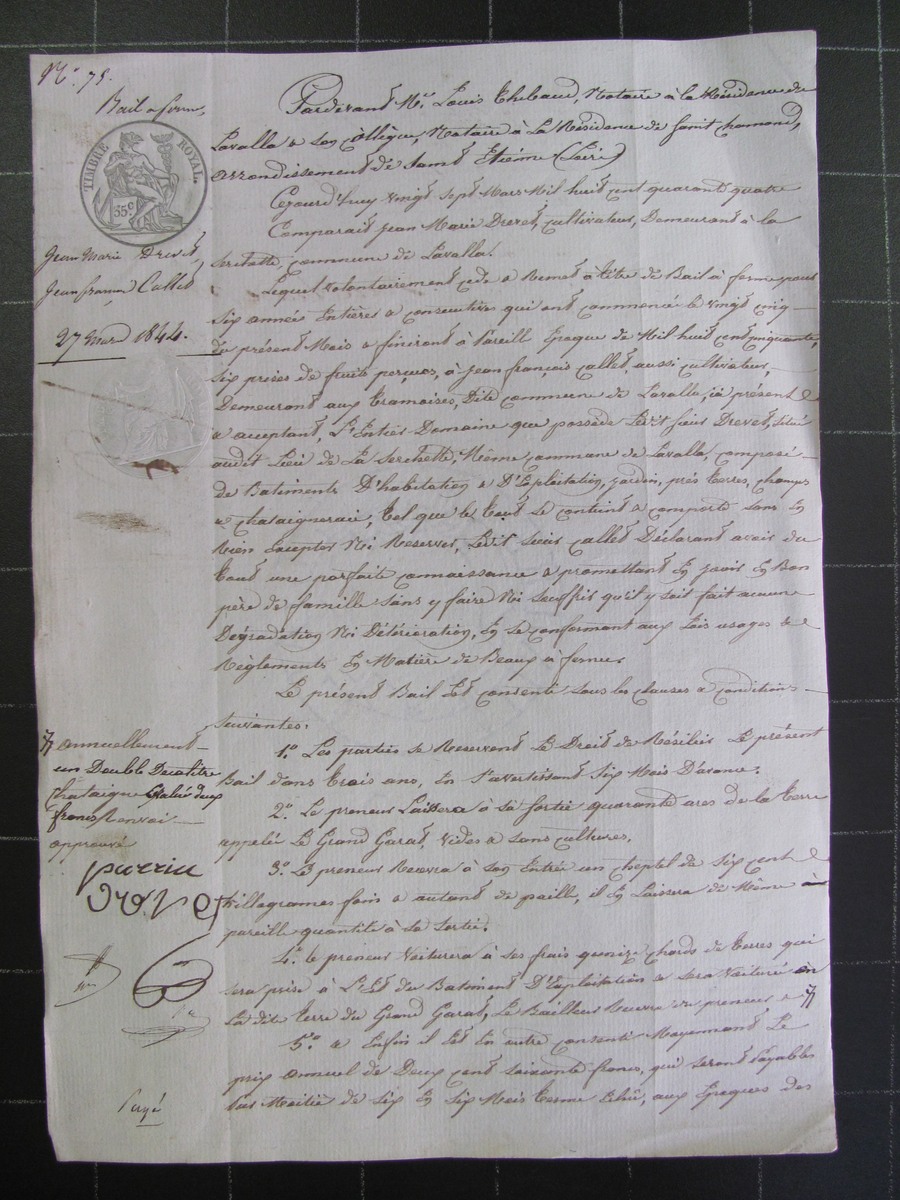 N.° 75.
Bail a ferme,
TIMBRE ROYAL.
35 c.
Jean Marie Drevet,
Jean françois Callet
27 Mars 1844.
Pardevant M.e Louis Thibaud, Notaire à la Résidence de
Lavalla & son Collègue, Notaire à La Résidence de Saint chamond,
arrondissement de Saint Etienne (Loire)
Cejourd'huy vingt sept Mars Mil huit cent quarante quatre
Comparait Jean Marie Drevet, cultivateur, Demeurant à la
Serchette, commune de Lavalla.
Lequel volontairement cede & Remet à titre de Bail à ferme pour
Six années Entières & consécutives qui ont commencé le vingt cinq
du présent Mois & finiront à Pareille Epoque de Mil huit cent cinquante,
Six prises de fruits perçues, à Jean françois Callet, aussi cultivateur,
Demeurant aux Eramoises, Dite commune de Lavalla, ci présent
& acceptant, L'Entier Domaine que possède Ledit sieur Drevet, Situé
audit Lieu de La Serchette, Même commune de Lavalla, composé
de Batiments D'habitation & D'Exploitation, jardin, prés terres, champs
& chataigneraie, tel que le tout Se contient & comporte sans En
Rien Excepter Ni Reserver, Ledit sieur Callet Déclarant avoir du
tout une parfaite connaissance & promettant En jouir En Bon
père de famille Sans y faire Ni Souffrir qu'il y soit fait aucune
Dégradation Ni Détérioration, En Se conformant aux Lois usages &
Règlements En Matière de Beaux à ferme.
Le présent Bail Est consenti sous les clauses & conditions
Suivantes.
1.° Les parties Se Reservent Le Droit de Résilier Le présent
Bail dans trois ans, En S'avertissant Six Mois D'avance.
2.° Le preneur Laissera à Sa Sortie quarante ares de la terre
appelée Le Grand Garat, vides & sans cultures.
3.° Le preneur Recevra à son Entrée un cheptel de Six cent
Killogrames foin & autant de paille, il En Laissera de Même
pareille quantité à Sa Sortie.
4.° le preneur Voiturera à ses frais quinize chards de terres qui
sera prise à L'Est du Batiment D'Exploitation & sera voituré en
La dite terre du Grand Garat, Le Bailleur Recevra du preneur
5.° & Enfin il Est En outre consenti Moyennant Le
prix annuel de Deux cent soixante francs, qui seront Payables
Par Moitié de Six En Six Mois terme Echû, aux Epoques des
annuellement
un Double Decalitre
chataigne Evalué deux
francs Renvoi
approuvé
Drevet
Payé